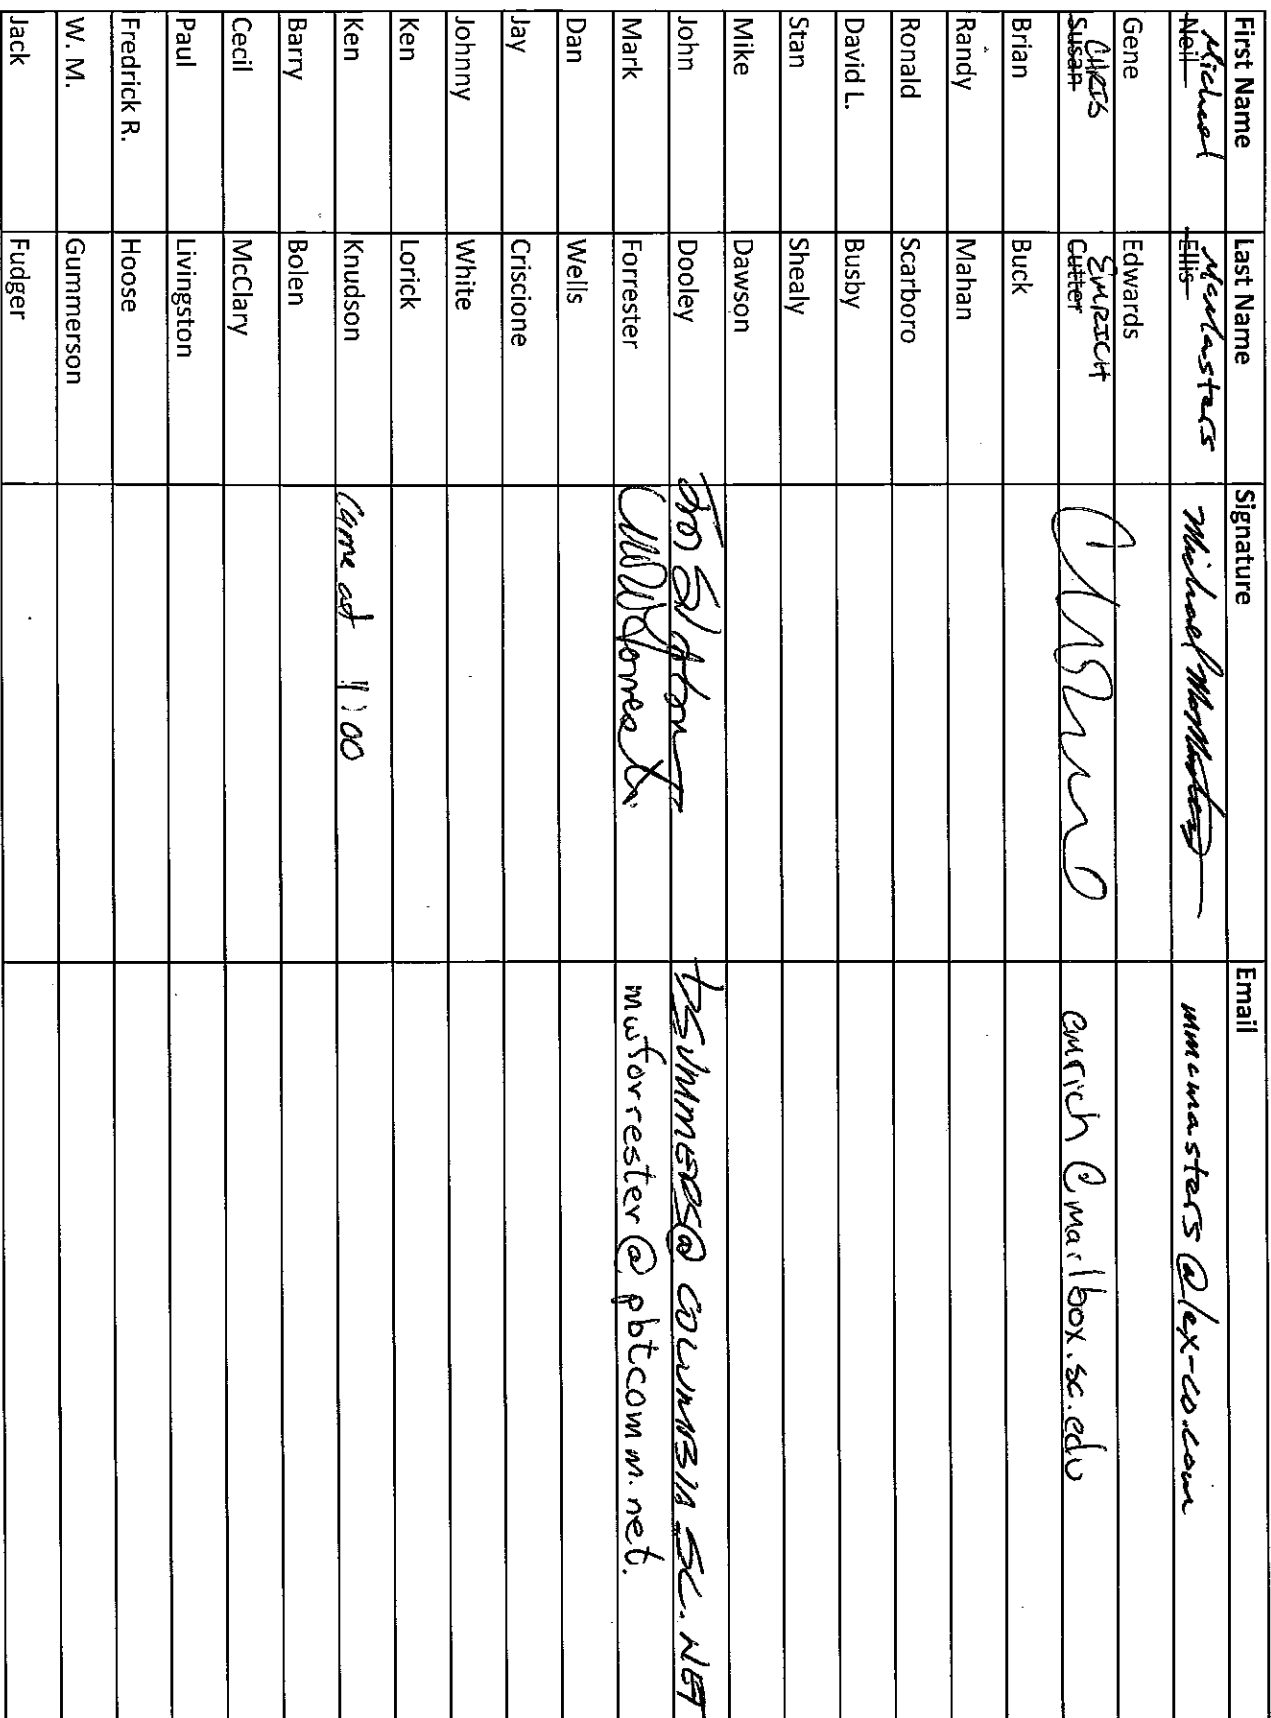 First Name Last Name Signature Email
Michael McMasters
Neil Ellis Michael McMasters mmcmasters@lex-co.com
Gene Edwards
CHRIS EMRICH
Susan Cutter emrich@mailbox.sc.edu
Brian Buck
Randy Mahan
Ronald Scarboro
David L. Busby
Stan Shealy
Mike Dawson
John Dooley TSUMMERS@COLUMBIASC.NET
Mark Forrester mwforrester@pbtcomm.net.
Dan Wells
Jay Criscione
Johnny White
Ken Lorick
Ken Knudson Came at 11:00
Barry Bolen
Cecil McClary
Paul Livingston
Fredrick R. Hoose
W. M. Gummerson
Jack Fudger